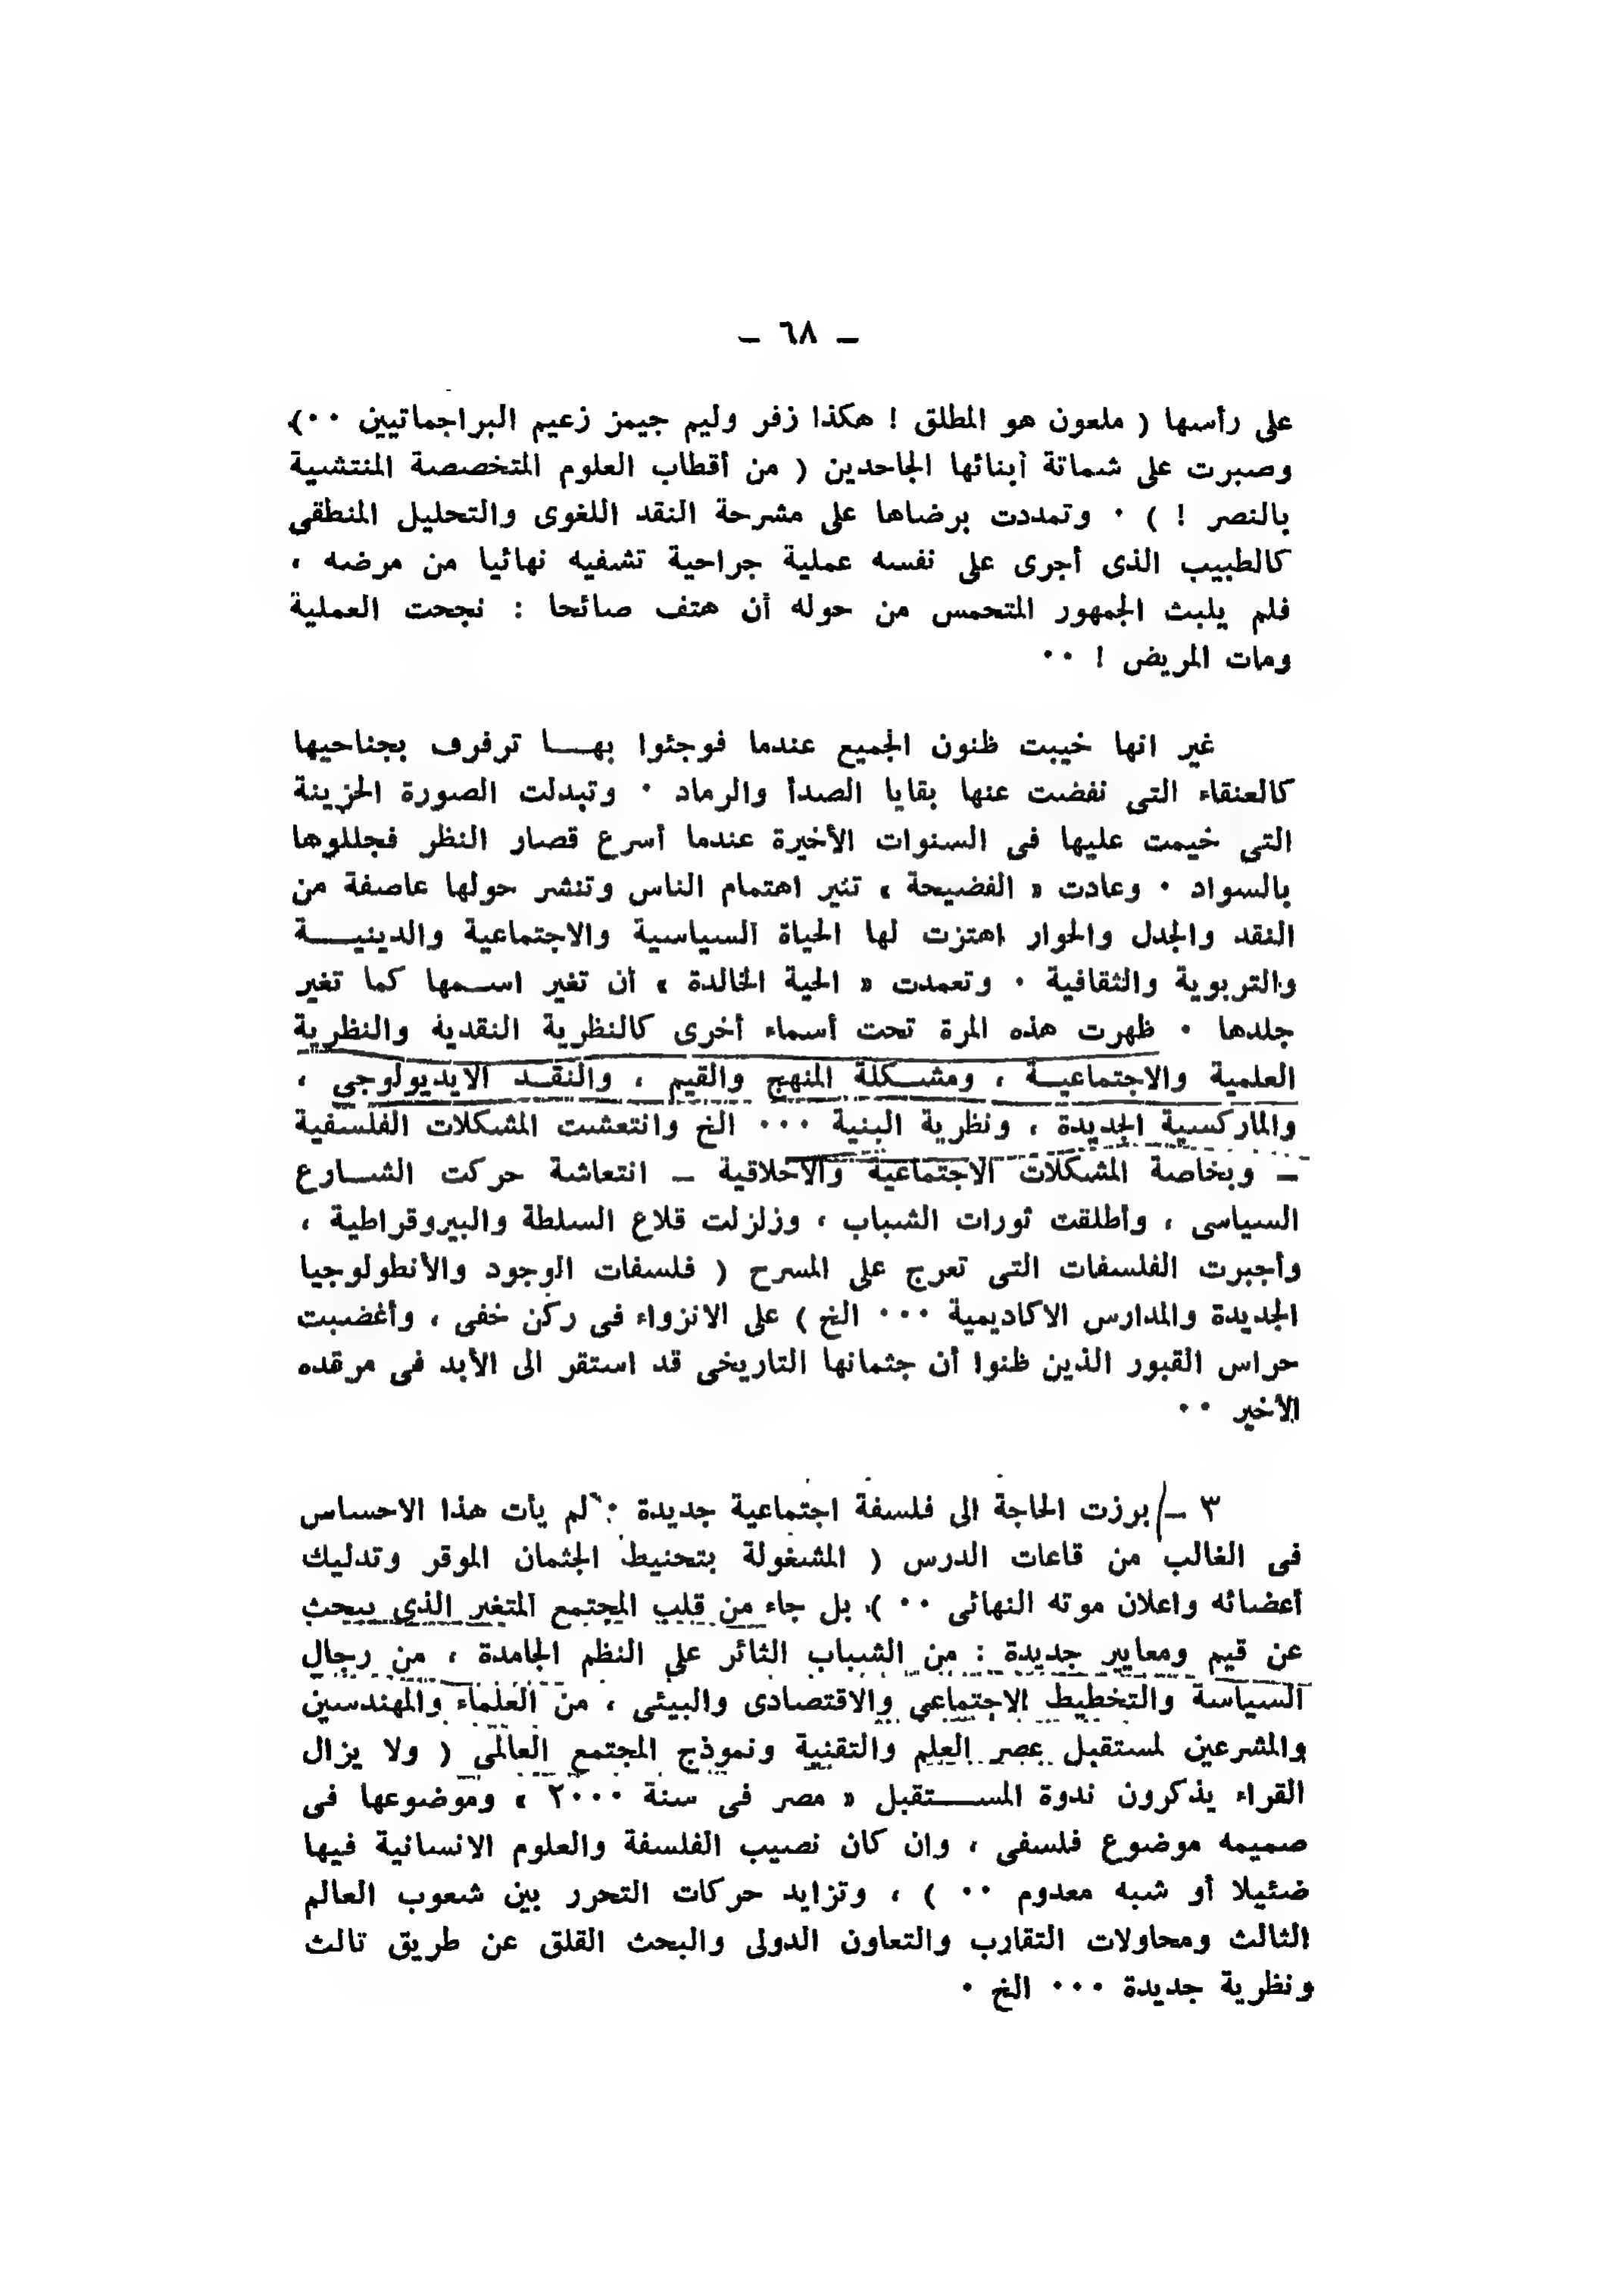 – ٦٨ –
على رأسها ( ملعون هو المطلق ! هكذا زفر وليم جيمز زعيم البراجماتيين ٠٠)
وصبرت على شماتة أبنائها الجاحدين ( من أقطاب العلوم المتخصصة المنتشية
بالنصر ! ) ٠ وتمددت برضاها على مشرحة النقد اللغوى والتحليل المنطقى
كالطبيب الذى أجرى على نفسه عملية جراحية تشفيه نهائيا من مرضه ،
فلم يلبث الجمهور المتحمس من حوله أن هتف صائحا : نجحت العملية
ومات المريض ! ٠٠
غير انها خيبت ظنون الجميع عندما فوجئوا بهـــا ترفرف بجناحيها
كالعنقاء التى نفضت عنها بقايا الصدأ والرماد ٠ وتبدلت الصورة الحزينة
التى خيمت عليها فى السنوات الأخيرة عندما أسرع قصار النظر فجللوها
بالسواد ٠ وعادت « الفضيحة » تثير اهتمام الناس وتنشر حولها عاصفة من
النقد والجدل والحوار اهتزت لها الحياة السياسية والاجتماعية والدينيـــة
والتربوية والثقافية ٠ وتعمدت « الحية الخالدة » أن تغير اســمها كما تغير
جلدها ٠ ظهرت هذه المرة تحت أسماء أخرى كالنظرية النقدية والنظرية
العلمية والاجتماعيــة ، ومشــكلة المنهج والقيم ، والنقــد الايديولوجى ،
والماركسية الجديدة ، ونظرية البنية ٠٠٠ الخ وانتعشت المشكلات الفلسفية
– وبخاصة المشكلات الاجتماعية والأخلاقية – انتعاشة حركت الشــارع
السياسى ، وأطلقت ثورات الشباب ، وزلزلت قلاع السلطة والبيروقراطية ،
وأجبرت الفلسفات التى تعرج على المسرح ( فلسفات الوجود والأنطولوجيا
الجديدة والمدارس الاكاديمية ٠٠٠ الخ ) على الانزواء فى ركن خفى ، وأغضبت
حراس القبور الذين ظنوا أن جثمانها التاريخى قد استقر الى الأبد فى مرقده
الأخير ٠٠
٣ – برزت الحاجة الى فلسفة اجتماعية جديدة : لم يأت هذا الاحساس
فى الغالب من قاعات الدرس ( المشغولة بتحنيط الجثمان الموقر وتدليك
أعضائه واعلان موته النهائى ٠٠ ) بل جاء من قلب المجتمع المتغير الذى يبحث
عن قيم ومعايير جديدة : من الشباب الثائر على النظم الجامدة ، من رجال
السياسة والتخطيط الاجتماعى والاقتصادى والبيئى ، من العلماء والمهندسين
والمشرعين لمستقبل عصر العلم والتقنية ونموذج المجتمع العالمى ( ولا يزال
القراء يذكرون ندوة المســـتقبل « مصر فى سنة ٢٠٠٠ » وموضوعها فى
صميمه موضوع فلسفى ، وان كان نصيب الفلسفة والعلوم الانسانية فيها
ضئيلا أو شبه معدوم ٠٠ ) ، وتزايد حركات التحرر بين شعوب العالم
الثالث ومحاولات التقارب والتعاون الدولى والبحث القلق عن طريق ثالث
ونظرية جديدة ٠٠٠ الخ ٠